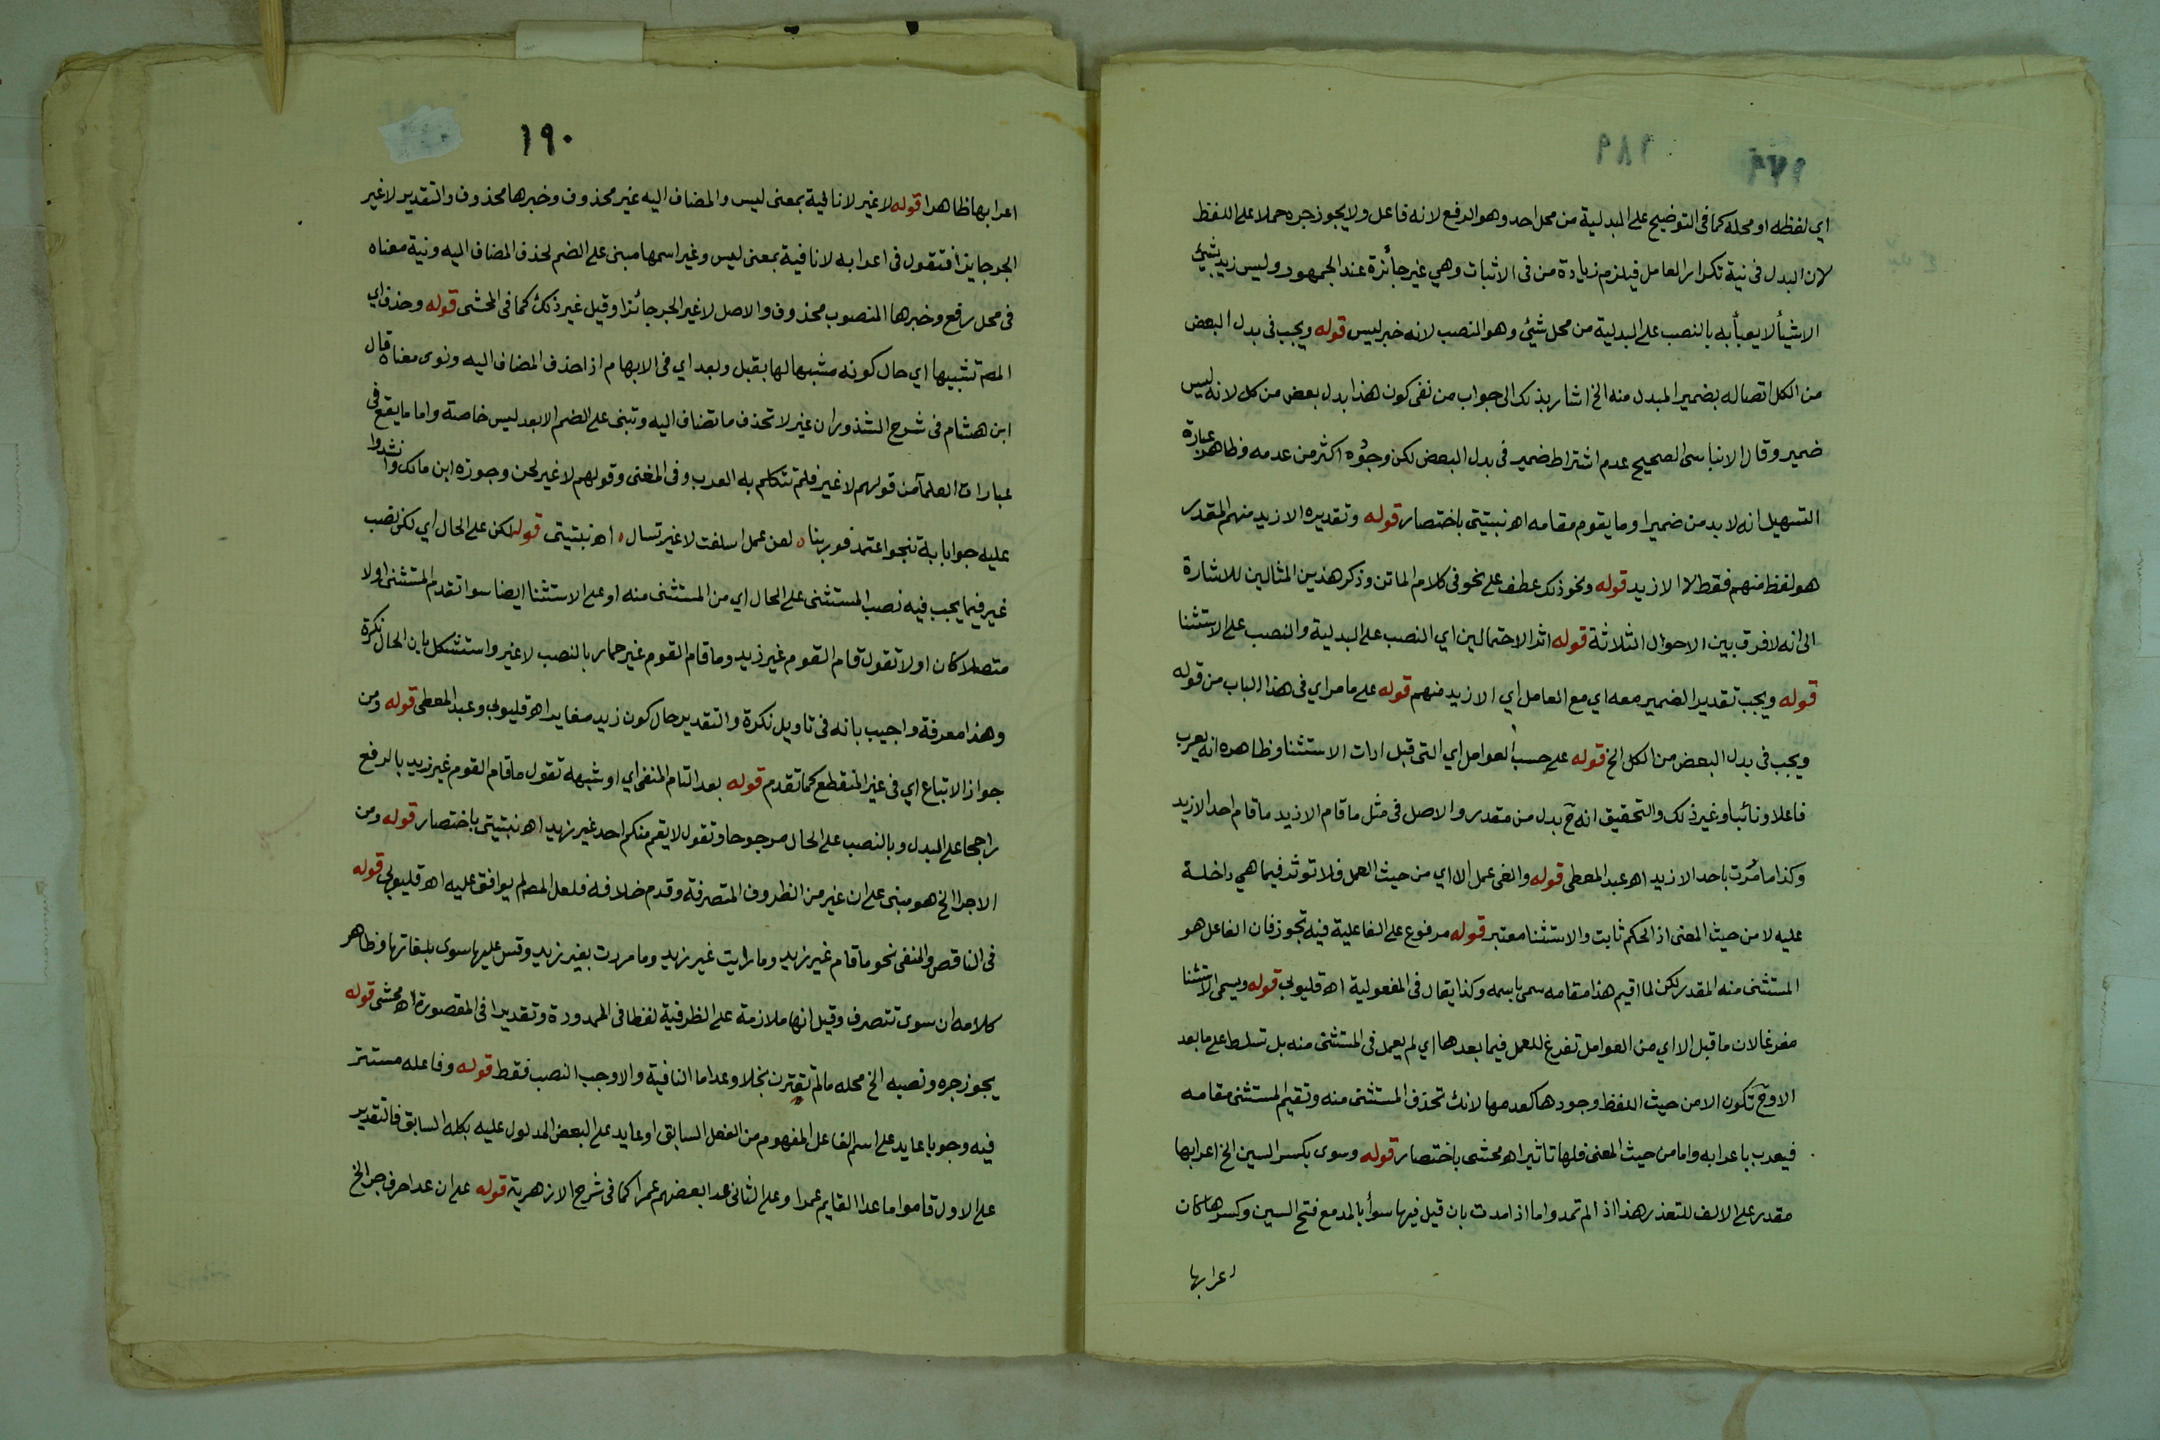 ١٨٩
اي لفظه او محله كما في التوضيح على البدلية من محل احد وهو الرفع لانه فاعل ولا يجوز جره حملا على اللفظ
لان البدل في نية تكرار العامل فيلزم زيادة من في الاثبات وهي غير جائزة عند الجمهور وليس زيد بشيئ
الا شيأ لا يعبأ به بالنصب على البدلية من محل شيئ وهو النصب لانه خبر ليس قوله ويجب في بدل البعض
من الكل اتصاله بضمير المبدل منه الخ اشار بذلك الى جواب من نفى كون هذا بدل بعض من كل لانه ليس
ضمير وقال الانباسى الصحيح عدم اشتراط ضمير في بدل البعض لكن وجوده اكثر من عدمه وظاهر عبارة
التسهيل انه لا بد من ضمير او ما يقوم مقامه اه نبتيتي باختصار قوله وتقديره الا زيد منهم المقدر
هو لفظ منهم فقط لا الا زيد قوله ونحو ذلك عطف على نحو في كلام الماتن وذكر هذين المثالين للاشارة
الى انه لا فرق بين الاحوال الثلاثة قوله اثر الاحتمالين اي النصب على البدلية والنصب على الاستثنا
قوله ويجب تقدير الضمير معه اي مع العامل اي الا زيد منهم قوله على ما مر اي في هذا الباب من قوله
ويجب في بدل البعض من الكل الخ قوله على حسب العوامل اي التي قبل ادات الاستثنا وظاهره انه يعرب
فاعلا ونائبا وغير ذلك والتحقيق انه ح بدل من مقدر والاصل في مثل ما قام الا زيد ما قام احد الا زيد
وكذا ما مررت باحد الا زيد اه عبد المعطي قوله والغي عمل الا اي من حيث العمل فلا توثر فيما هي داخلة
عليه لا من حيث المعنى اذ الحكم ثابت والاستثنا معتبر قوله مرفوع على الفاعلية فيه تجوز فان الفاعل هو
المستثنى منه المقدر لكن لما اقيم هذا مقامه سمي باسمه وكذا يقال في المفعولية اه قليوبي قوله ويسمى الاستثنا
مفرغا لان ما قبل الا اي من العوامل تفرغ للعمل فيما بعدها اي لم يعمل في المستثنى منه بل تسلط على ما بعد
الا وح تكون الا من حيث اللفظ وجودها كعدمها لانك تحذف المستثنى منه وتقيم المستثنى مقامه
فيعرب باعرابه واما من حيث المعنى فلها تاثير اه محشي باختصار قوله وسوى بكسر السين الخ اعرابها
مقدر على الالف للتعذر هذا اذا لم تمد واما اذا مدت بان قيل فيها سوأ بالمد مع فتح السين وكسرها كان
اعرابها
١٩٠
اعرابها ظاهرا قوله لا غير لا نافية بمعنى ليس والمضاف اليه غير محذوف وخبرها محذوف والتقدير لا غير
الجر جايزا فتقول في اعرابه لا نافية بمعنى ليس وغير اسمها مبني على الضم لحذف المضاف اليه ونية معناه
في محل رفع وخبرها المنصوب محذوف والاصل لا غير الجر جائزا وقيل غير ذلك كما في المحشي قوله وحذف اي
المص تشبيها اي حال كونه مشبها لها بقبل وبعد اي في الابهام اذا حذف المضاف اليه ونوى معناه قال
ابن هشام في شرح الشذور ان غير لا تحذف ما تضاف اليه وتبنى على الضم الا بعد ليس خاصة واما ما يقع في
عبارات العلمآ من قولهم لا غير فلم تتكلم به العرب وفي المغني وقولهم لا غير لحن وجوزه ابن مالك وانشدوا
عليه جوابا به تنجو اعتمد فوربنا ه لعن عمل اسلفت لا غير تسال ه اه نبتيتي قوله لكن على الحال اي لكن نصب
غير فيما يجب فيه نصب المستثنى على الحال اي من المستثنى منه او على الاستثنا ايضا سوا تقدم المستثنى اولا
متصلا كان اولا تقول قام القوم غير زيد وما قام القوم غير حمار بالنصب لا غير واستشكل بان الحال نكرة
وهذا معرفة واجيب بانه في تاويل نكرة والتقدير حال كون زيد مغايرا اه قليوبي وعبد المعطي قوله ومن
جواز الاتباع اي في غير المنقطع كما تقدم قوله بعد التام المنفي اي او شبهه تقول ما قام القوم غير زيد بالرفع
راجحا على البدل وبالنصب على الحال مرجوحا وتقول لا يقم منكم احد غير زيد اه نبتيتي باختصار قوله ومن
الاجرا الخ هو مبني على ان غير من الظروف المتصرفة وقدم خلافه فلعل المص لم يوافق عليه اه قليوبي قوله
في الناقص والمنفي نحو ما قام غير زيد وما رايت غير زيد وما مررت بغير زيد وقس عليها سوى بلغاتها وظاهر
كلامه ان سوى تتصرف وقيل انها ملازمة على الظرفية لفظا في الممدودة وتقديرا في المقصورة اه محشي قوله
يجوز جره ونصبه الخ محله ما لم تقترن بخلا وعدا ما النافية والا وجب النصب فقط قوله وفاعله مستتر
فيه وجوبا عايد على اسم الفاعل المفهوم من الفعل السابق او عايد على البعض المدلول عليه بكله السابق فالتقدير
على الاول قاموا ما عدا القايم عمرا وعلى الثاني عدا بعضهم عمرا كما في شرح الازهرية قوله على ان عدا حرف جر الخ